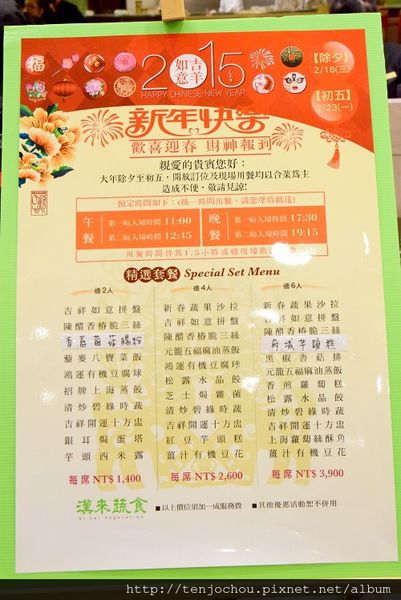 福
2015
如意
吉羊
HAPPY CHINESE NEW YEAR
【除夕】
2/18(三)
【初五】
2/23(一)
新年快樂
歡喜迎春 財神報到
親愛的貴賓您好：
大年除夕至初五，開放訂位及現場用餐均以合菜為主
造成不便，敬請見諒!
預定時間如下：(統一時間出餐，請您準時抵達)
午餐
第一輪入場時間 11:00
第二輪入場時間 12:45
晚餐
第一輪入場時間 17:30
第二輪入場時間 19:15
用餐時間皆為1.5小時或視現場
精選套餐 Special Set Menu
適2人
吉祥如意拼盤
陳醋香椿脆三絲
藜麥八寶菜飯
鴻運有機豆腐球
招牌上海蒸餃
清炒碧綠時蔬
吉祥開運十方盅
銀耳焗蛋塔
芋頭西米露
每席 NT$ 1,400
適4人
新春蔬果沙拉
吉祥如意拼盤
陳醋香椿脆三絲
元籠五福麻油蒸飯
鴻運有機豆腐球
松露水晶餃
芝士焗雜菌
清炒碧綠時蔬
吉祥開運十方盅
紅豆芋頭糕
薑汁有機豆花
每席 NT$ 2,600
適6人
新春蔬果沙拉
吉祥如意拼盤
陳醋香椿脆三絲
黑椒杏菇排
元籠五福麻油蒸飯
香煎蘿蔔糕
松露水晶餃
清炒碧綠時蔬
吉祥開運十方盅
上海蘿蔔絲酥角
薑汁有機豆花
每席 NT$ 3,900
漢來蔬食
Hi-Lai Vegetarian
■以上價位須加一成服務費
■其他優惠活動恕不併用
http://tenjochou.pixnet.net/album